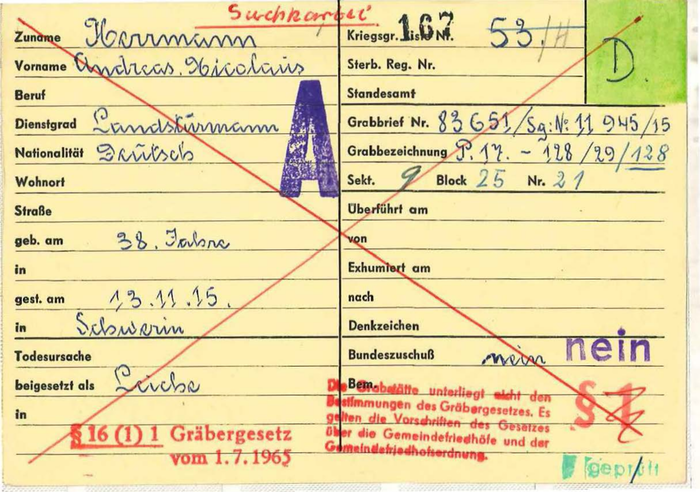 Suchkartei
Zuname Herrmann
Vorname Andreas. Nicolaus
Beruf
Dienstgrad Landstürmann
Nationalität Deutsch
Wohnort
Straße
geb. am 38. Jahre
in
gest. am 13.11.15.
in Schwerin
Todesursache
beigesetzt als Leiche
in
§ 16 (1) 1 Gräbergesetz
vom 1.7.1965
A
Kriegsgr. Liste Nr. 167 53/H
D.
Sterb. Reg. Nr.
Standesamt
Grabbrief Nr. 83 651/Sg: No 11 945/15
Grabbezeichnung P. 17. - 128/29/128
Sekt. 9 Block 25 Nr. 21
Überführt am
von
Exhumiert am
nach
Denkzeichen
Bundeszuschuß nein nein
Bem.
Die Grabstätte unterliegt nicht den
Bestimmungen des Gräbergesetzes. Es
gelten die Vorschriften des Gesetzes
über die Gemeindefriedhöfe und der
Gemeindefriedhofsordnung.
§ 1
geprüft